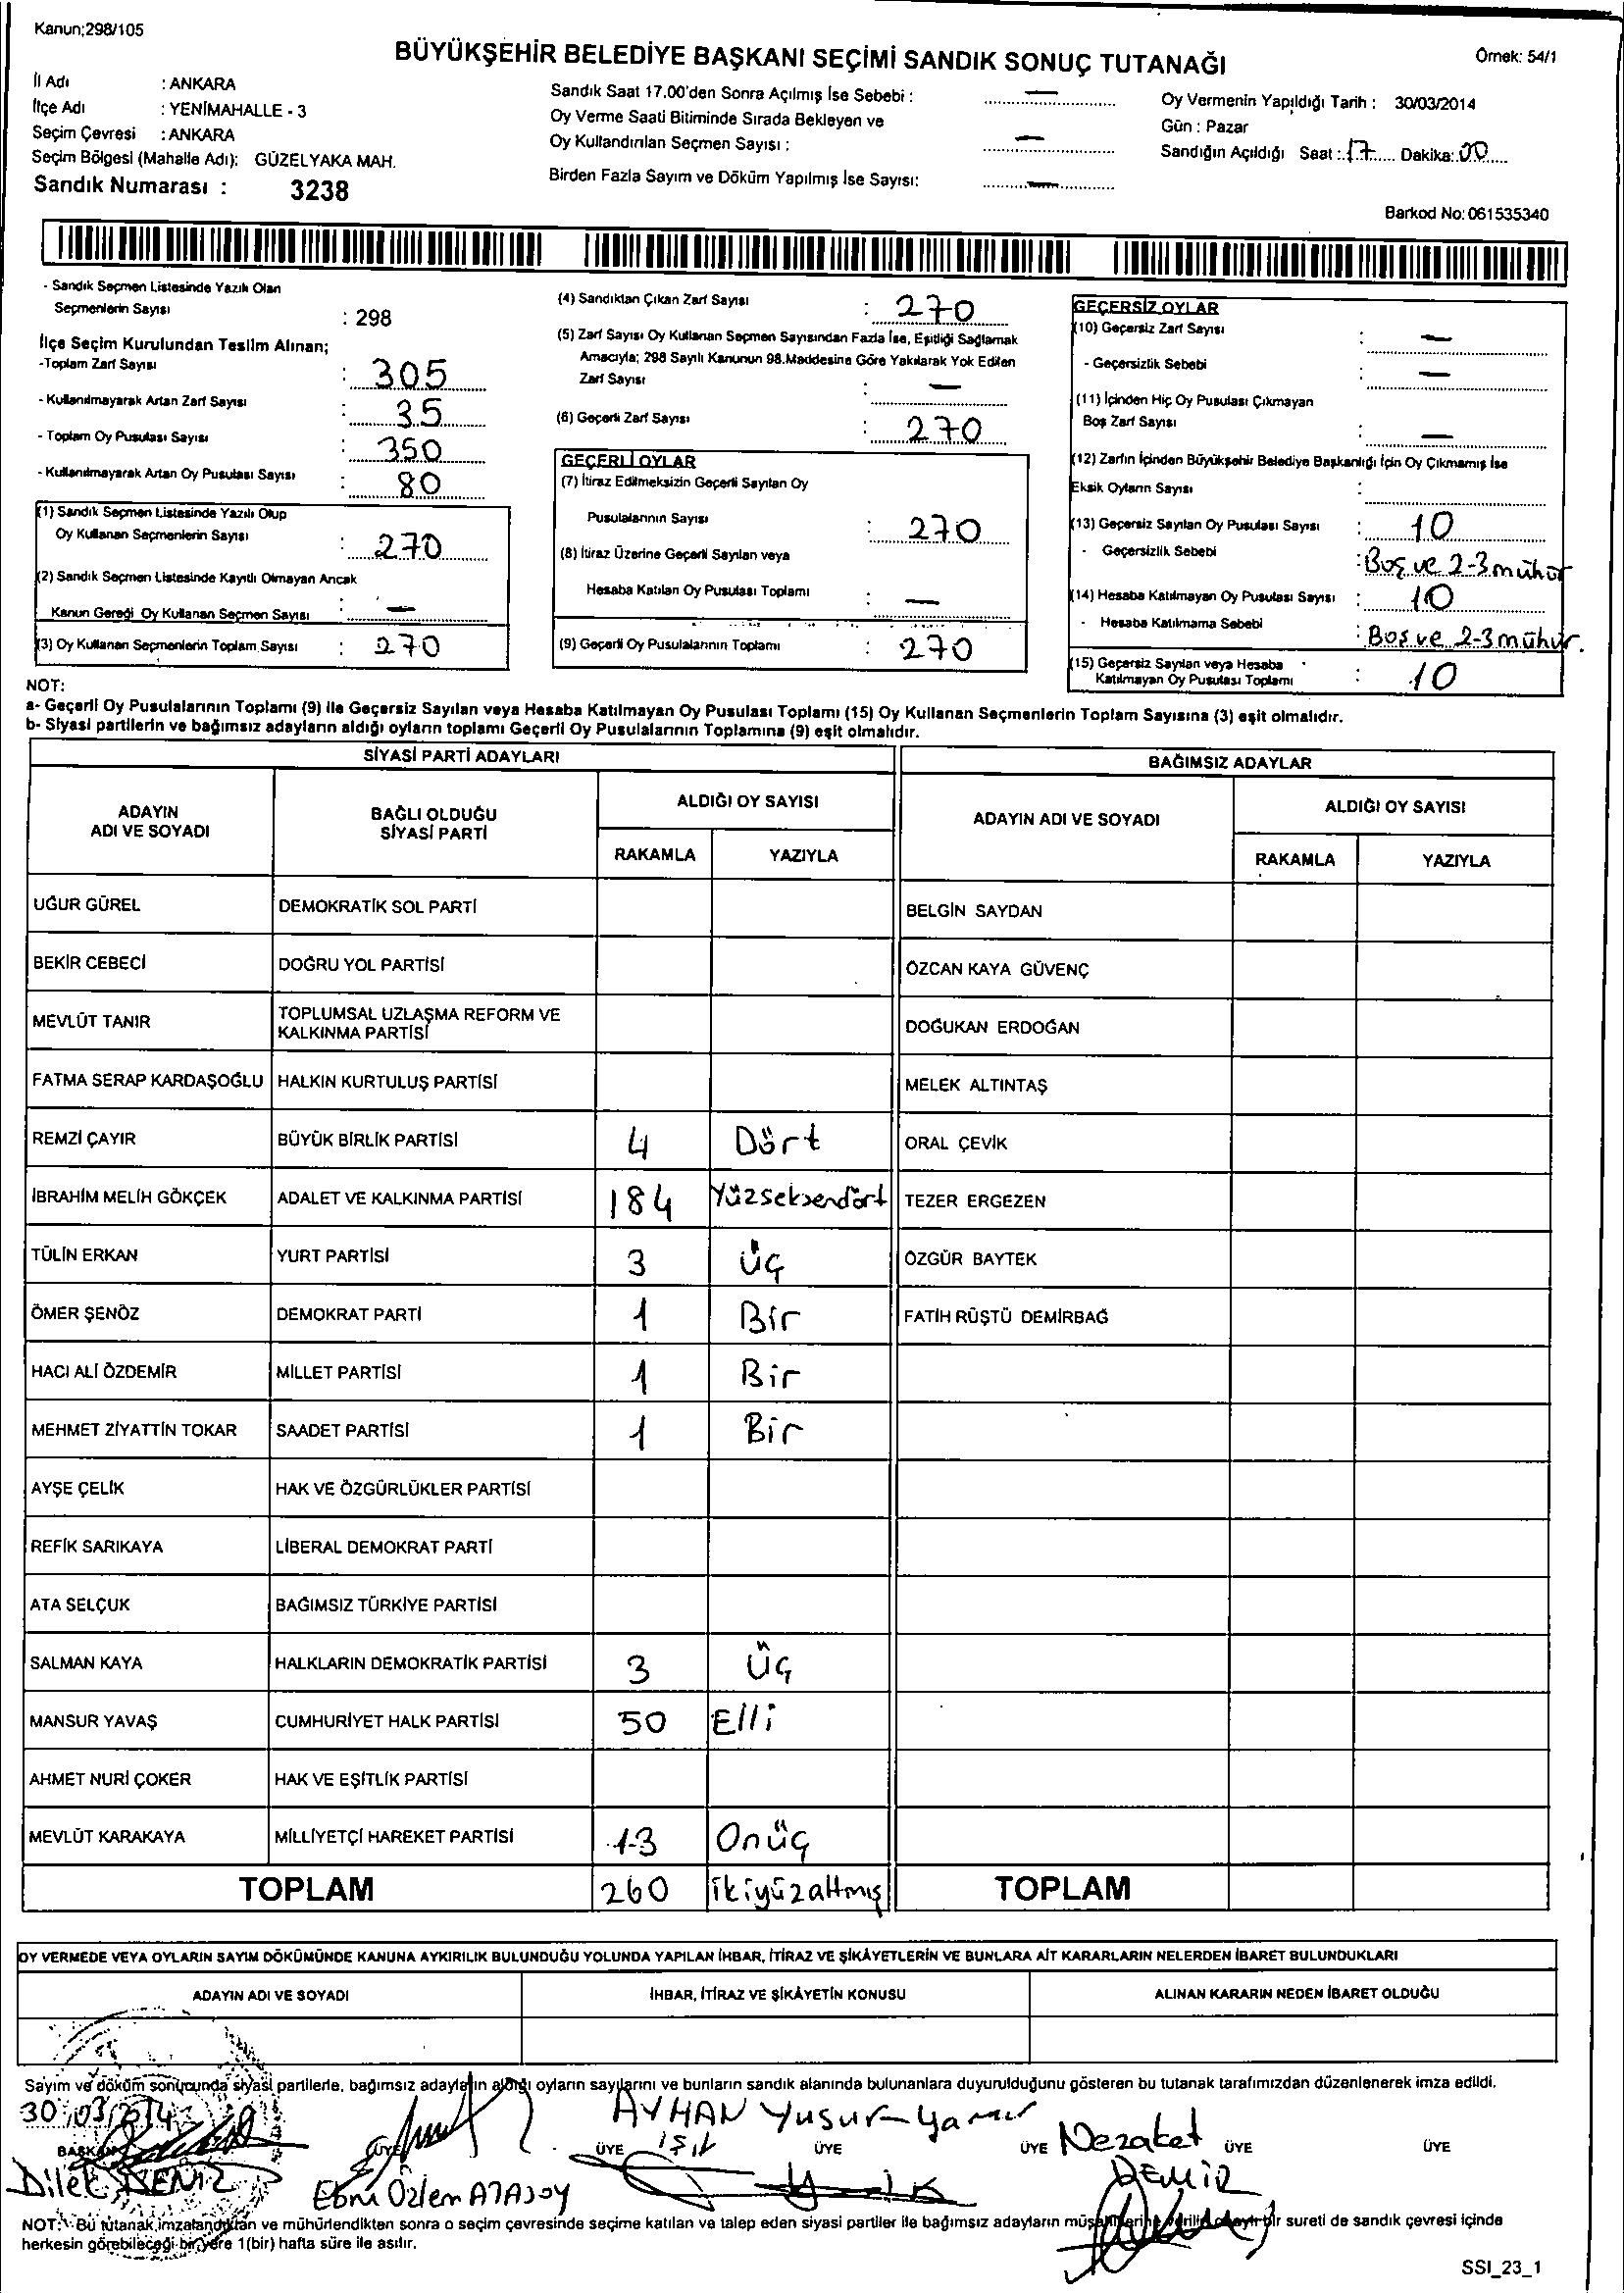 Kanun;298/105
BÜYÜKŞEHİR BELEDİYE BAŞKANI SEÇİMİ SANDIK SONUÇ TUTANAĞI
Örnek: 54/1
İl Adı : ANKARA
İlçe Adı : YENİMAHALLE - 3
Seçim Çevresi : ANKARA
Seçim Bölgesi (Mahalle Adı): GÜZELYAKA MAH.
Sandık Numarası : 3238
Sandık Saat 17.00'den Sonra Açılmış İse Sebebi : —
Oy Verme Saati Bitiminde Sırada Bekleyen ve
Oy Kullandırılan Seçmen Sayısı : —
Birden Fazla Sayım ve Döküm Yapılmış İse Sayısı: —
Oy Vermenin Yapıldığı Tarih : 30/03/2014
Gün : Pazar
Sandığın Açıldığı Saat : 17 Dakika: 00
Barkod No: 061535340
- Sandık Seçmen Listesinde Yazılı Olan
Seçmenlerin Sayısı : 298
İlçe Seçim Kurulundan Teslim Alınan;
-Toplam Zarf Sayısı : 305
- Kullanılmayarak Artan Zarf Sayısı : 35
- Toplam Oy Pusulası Sayısı : 350
- Kullanılmayarak Artan Oy Pusulası Sayısı : 80
(1) Sandık Seçmen Listesinde Yazılı Olup
Oy Kullanan Seçmenlerin Sayısı : 270
(2) Sandık Seçmen Listesinde Kayıtlı Olmayan Ancak
Kanun Gereği Oy Kullanan Seçmen Sayısı : —
(3) Oy Kullanan Seçmenlerin Toplam Sayısı : 270
(4) Sandıktan Çıkan Zarf Sayısı : 270
(5) Zarf Sayısı Oy Kullanan Seçmen Sayısından Fazla İse, Eşitliği Sağlamak
Amacıyla; 298 Sayılı Kanunun 98.Maddesine Göre Yakılarak Yok Edilen
Zarf Sayısı : —
(6) Geçerli Zarf Sayısı : 270
GEÇERLİ OYLAR
(7) İtiraz Edilmeksizin Geçerli Sayılan Oy
Pusulalarının Sayısı : 270
(8) İtiraz Üzerine Geçerli Sayılan veya
Hesaba Katılan Oy Pusulası Toplamı : —
(9) Geçerli Oy Pusulalarının Toplamı : 270
GEÇERSİZ OYLAR
(10) Geçersiz Zarf Sayısı : —
- Geçersizlik Sebebi : —
(11) İçinden Hiç Oy Pusulası Çıkmayan
Boş Zarf Sayısı : —
(12) Zarfın İçinden Büyükşehir Belediye Başkanlığı İçin Oy Çıkmamış İse
Eksik Oyların Sayısı :
(13) Geçersiz Sayılan Oy Pusulası Sayısı : 10
- Geçersizlik Sebebi : Boş ve 2-3 mühür
(14) Hesaba Katılmayan Oy Pusulası Sayısı : 10
- Hesaba Katılmama Sebebi : Boş ve 2-3 mühür.
(15) Geçersiz Sayılan veya Hesaba
Katılmayan Oy Pusulası Toplamı : 10
NOT:
a- Geçerli Oy Pusulalarının Toplamı (9) ile Geçersiz Sayılan veya Hesaba Katılmayan Oy Pusulası Toplamı (15) Oy Kullanan Seçmenlerin Toplam Sayısına (3) eşit olmalıdır.
b- Siyasi partilerin ve bağımsız adayların aldığı oyların toplamı Geçerli Oy Pusulalarının Toplamına (9) eşit olmalıdır.
SİYASİ PARTİ ADAYLARI BAĞIMSIZ ADAYLAR
ADAYIN ADI VE SOYADI BAĞLI OLDUĞU SİYASİ PARTİ ALDIĞI OY SAYISI ADAYIN ADI VE SOYADI ALDIĞI OY SAYISI
RAKAMLA YAZIYLA RAKAMLA YAZIYLA
UĞUR GÜREL DEMOKRATİK SOL PARTİ BELGİN SAYDAN
BEKİR CEBECİ DOĞRU YOL PARTİSİ ÖZCAN KAYA GÜVENÇ
MEVLÜT TANIR TOPLUMSAL UZLAŞMA REFORM VE KALKINMA PARTİSİ DOĞUKAN ERDOĞAN
FATMA SERAP KARDAŞOĞLU HALKIN KURTULUŞ PARTİSİ MELEK ALTINTAŞ
REMZİ ÇAYIR BÜYÜK BİRLİK PARTİSİ 4 Dört ORAL ÇEVİK
İBRAHİM MELİH GÖKÇEK ADALET VE KALKINMA PARTİSİ 184 Yüzseksendört TEZER ERGEZEN
TÜLİN ERKAN YURT PARTİSİ 3 Üç ÖZGÜR BAYTEK
ÖMER ŞENÖZ DEMOKRAT PARTİ 1 Bir FATİH RÜŞTÜ DEMİRBAĞ
HACI ALİ ÖZDEMİR MİLLET PARTİSİ 1 Bir
MEHMET ZİYATTİN TOKAR SAADET PARTİSİ 1 Bir
AYŞE ÇELİK HAK VE ÖZGÜRLÜKLER PARTİSİ
REFİK SARIKAYA LİBERAL DEMOKRAT PARTİ
ATA SELÇUK BAĞIMSIZ TÜRKİYE PARTİSİ
SALMAN KAYA HALKLARIN DEMOKRATİK PARTİSİ 3 Üç
MANSUR YAVAŞ CUMHURİYET HALK PARTİSİ 50 Elli
AHMET NURİ ÇOKER HAK VE EŞİTLİK PARTİSİ
MEVLÜT KARAKAYA MİLLİYETÇİ HAREKET PARTİSİ 13 Onüç
TOPLAM 260 ikiyüzaltmış TOPLAM
OY VERMEDE VEYA OYLARIN SAYIM DÖKÜMÜNDE KANUNA AYKIRILIK BULUNDUĞU YOLUNDA YAPILAN İHBAR, İTİRAZ VE ŞİKÂYETLERİN VE BUNLARA AİT KARARLARIN NELERDEN İBARET BULUNDUKLARI
ADAYIN ADI VE SOYADI İHBAR, İTİRAZ VE ŞİKÂYETİN KONUSU ALINAN KARARIN NEDEN İBARET OLDUĞU
Sayım ve döküm sonucunda siyasi partilerle, bağımsız adayların aldığı oyların sayılarını ve bunların sandık alanında bulunanlara duyurulduğunu gösteren bu tutanak tarafımızdan düzenlenerek imza edildi.
30/03/2014 AYHAN Yusuf Nezaket
BAŞKAN ÜYE ÜYE IŞIK ÜYE ÜYE ÜYE ÜYE
Dilek DENİZ Ebru Özlem ATASOY DEMİR
NOT: Bu tutanak imzalandıktan ve mühürlendikten sonra o seçim çevresinde seçime katılan ve talep eden siyasi partiler ile bağımsız adayların bir sureti de sandık çevresi içinde
herkesin görebileceği bir yere 1(bir) hafta süre ile asılır.
SSI_23_1